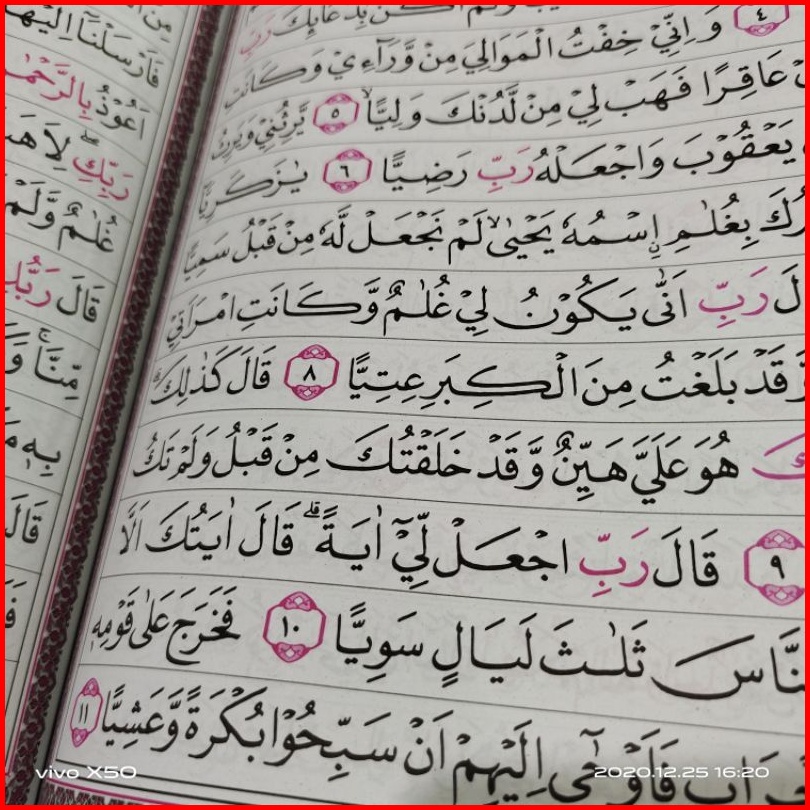 اَكُنْۢ بِدُعَآىِٕكَ رَبِّ
٤ وَاِنِّيْ خِفْتُ الْمَوَالِيَ مِنْ وَّرَاۤءِيْ وَكَانَتِ
عَاقِرًا فَهَبْ لِيْ مِنْ لَّدُنْكَ وَلِيًّاۙ ٥ يَّرِثُنِيْ وَيَرِثُ
يَعْقُوْبَ وَاجْعَلْهُ رَبِّ رَضِيًّا ٦ يٰزَكَرِيَّآ
بِغُلٰمِ ِۨاسْمُهٗ يَحْيٰىۙ لَمْ نَجْعَلْ لَّهٗ مِنْ قَبْلُ سَمِيًّا
رَبِّ اَنّٰى يَكُوْنُ لِيْ غُلٰمٌ وَّكَانَتِ امْرَاَتِيْ
وَّقَدْ بَلَغْتُ مِنَ الْكِبَرِ عِتِيًّا ٨ قَالَ كَذٰلِكَۚ
هُوَ عَلَيَّ هَيِّنٌ وَّقَدْ خَلَقْتُكَ مِنْ قَبْلُ وَلَمْ تَكُ
٩ قَالَ رَبِّ اجْعَلْ لِّيْٓ اٰيَةً ۗ قَالَ اٰيَتُكَ اَلَّا
النَّاسَ ثَلٰثَ لَيَالٍ سَوِيًّا ١٠ فَخَرَجَ عَلٰى قَوْمِهٖ
فَاَوْحٰٓى اِلَيْهِمْ اَنْ سَبِّحُوْا بُكْرَةً وَّعَشِيًّا ١١
فَاَرْسَلْنَآ اِلَيْهَا
اَعُوْذُ بِالرَّحْمٰنِ
رَبِّكِۖ لِاَهَبَ
غُلٰمٌ وَّلَمْ
قَالَ رَبُّكِ
مِّنَّاۚ وَ
بِهٖ
قَالَتْ
vivo X50
2020.12.25 16:20